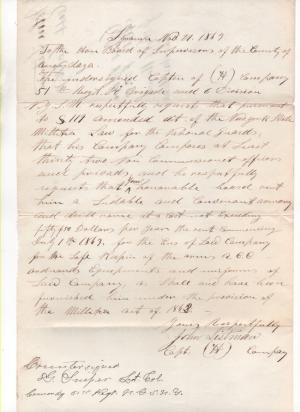 Syracuse Nov 21. 1869
To the Hon Board of Supervisors of the County of
Onondaga.
The undersigned Captin of (H) Company
51st Regt. Brigade and 6 Division
N.G.S.N.Y respectfully request that pursuant
to § 111 amended of the New York State
Militia Law for the National Guards,
that his Company Composes at Least
thirty two Non Commissioned officers
and privads, and he respectfully
requests that your honorable board rent
him a Sudable and Convenient armory
and drill at a cost not Exceeding
fifty Dollars per year the rent Commencing
July 1th 1869. for the use of Said Company
for the Safe Kapin of the arms &
Equipments and uniforms of
Said Company, as Shall and have been
furnished him under the provision of
the Militia act of 1862
Yours Respectfully
John Listman
Capt. (H) Company
Countersigned
Lt. Col.
Comndg 51st Regt. N.G.S.N.Y.